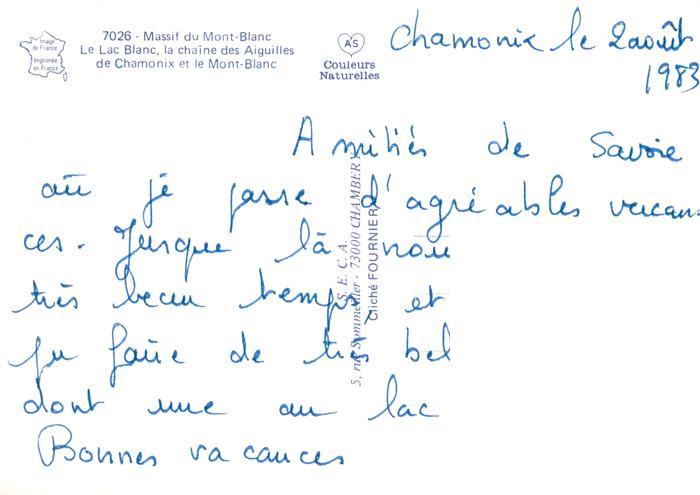 Image
de France
Imprimée
en France
7026 - Massif du Mont-Blanc
Le Lac Blanc, la chaîne des Aiguilles
de Chamonix et le Mont-Blanc
AS
Couleurs
Naturelles
Chamonix le 2 août
1983
Amitiés de Savoie
où je passe d'agréables vacan
ces. Jusque là nou
très beau temps, et
pu faire de très bel
dont une au lac
Bonnes vacances
S. E. C. A.
5, rue Sommeiller - 73000 CHAMBERY
Cliché FOURNIER